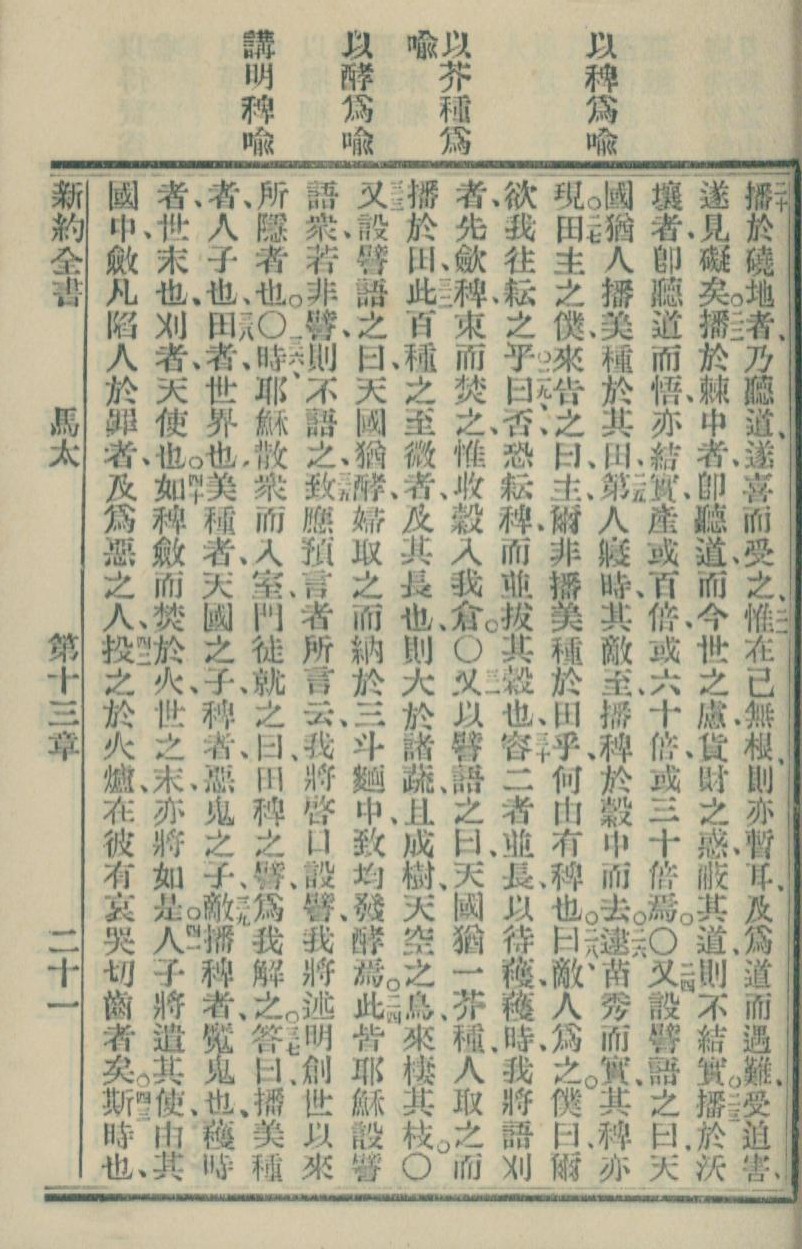 以稗爲喻
以芥種爲
喻
以酵爲喻
講明稗喻
二十播於磽地者、乃聽道、遂喜而受之、二一惟在己無根、則亦暫耳、及爲道而遇難、受迫害、
遂見礙矣。二二播於棘中者、卽聽道、而今世之慮、貨財之惑、蔽其道、則不結實。二三播於沃
壤者、卽聽道而悟、亦結實、產或百倍、或六十倍、或三十倍焉。〇二四又設譬語之曰、天
國猶人播美種於其田、二五第人寢時、其敵至、播稗於穀中而去。二六逮苗秀而實、其稗亦
現。二七田主之僕來告之曰、主、爾非播美種於田乎、何由有稗也。二八曰、敵人爲之。僕曰、爾
欲我往耘之乎。二九曰、否、恐耘稗、而並拔其穀也、三十容二者並長、以待穫、穫時、我將語刈
者、先斂稗、束而焚之、惟收穀入我倉。〇三一又以譬語之曰、天國猶一芥種、人取之而
播於田、三二此百種之至微者、及其長也、則大於諸蔬、且成樹、天空之鳥、來棲其枝。〇
三三又設譬語之曰、天國猶酵、婦取之而納於三斗麵中、致均發酵焉。三四此皆耶穌設譬
語衆、若非譬、則不語之、三五致應預言者所言云、我將啓口設譬、我將述明創世以來
所隱者也。〇三六時、耶穌散衆而入室、門徒就之曰、田稗之譬、爲我解之。三七答曰、播美種
者、人子也、三八田者、世界也、美種者、天國之子、稗者、惡鬼之子、三九敵播稗者、魔鬼也、穫時
者、世末也、刈者、天使也。四十如稗斂而焚於火、世之末、亦將如是。四一人子將遣其使、由其
國中、斂凡陷人於罪者、及爲惡之人、四二投之於火爐、在彼有哀哭切齒者矣。四三斯時也、
新約全書　馬太　第十三章　二十一